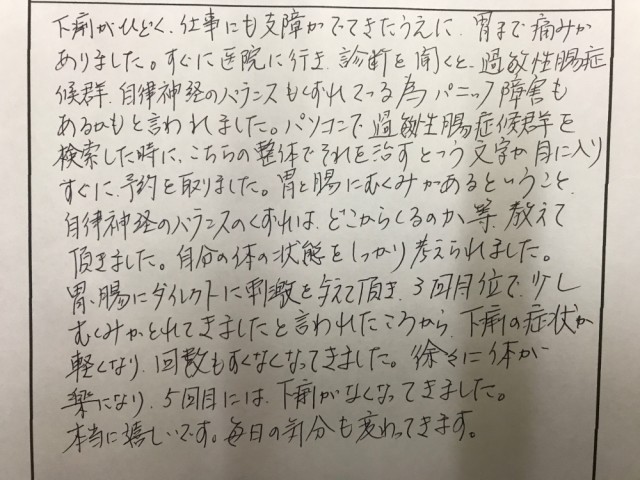 下痢がひどく、仕事にも支障がでてきたうえに、胃まで痛みが
ありました。すぐに医院に行き、診断を聞くと、過敏性腸症
候群、自律神経のバランスもくずれてる為パニック障害も
あるかもと言われました。パソコンで過敏性腸症候群を
検索した時に、こちらの整体でそれを治すという文字が目に入り
すぐに、予約を取りました。胃と腸にむくみがあるということ、
自律神経のバランスのくずれは、どこからくるのか等、教えて
頂きました。自分の体の状態をしっかり考えられました。
胃、腸にダイレクトに刺激を与えて頂き、3回目位で、少し
むくみがとれてきましたと言われたころから、下痢の症状が
軽くなり、回数もすくなくなってきました。徐々に体が
楽になり、5回目には、下痢がなくなってきました。
本当に嬉しいです。毎日の気分も変わってきます。